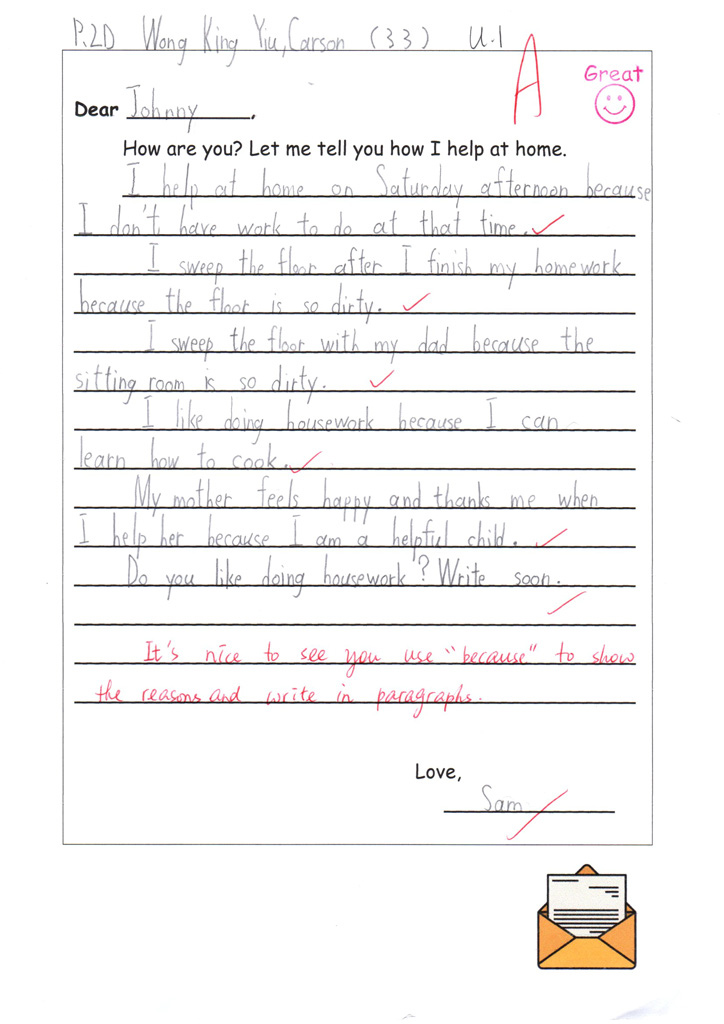 P.2D Wong King Yiu, Carson (33) U.1
A
Great
Dear Johnny,
How are you? Let me tell you how I help at home.
I help at home on Saturday afternoon because
I don't have work to do at that time.
I sweep the floor after I finish my homework
because the floor is so dirty.
I sweep the floor with my dad because the
sitting room is so dirty.
I like doing housework because I can
learn how to cook.
My mother feels happy and thanks me when
I help her because I am a helpful child.
Do you like doing housework? Write soon.
It's nice to see you use "because" to show
the reasons and write in paragraphs.
Love,
Sam